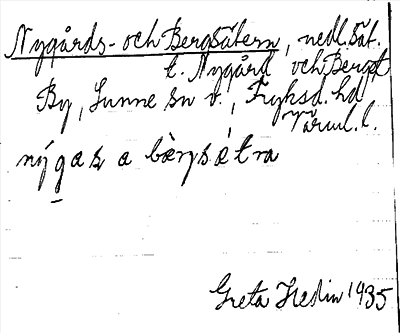 Nygårds- och Bergsätern, nedl. sät.
t. Nygård och Berget
By, Sunne sn v., Fryksd. hd
Värml. l.
nýgas a bærsætra
Greta Hedin 1935